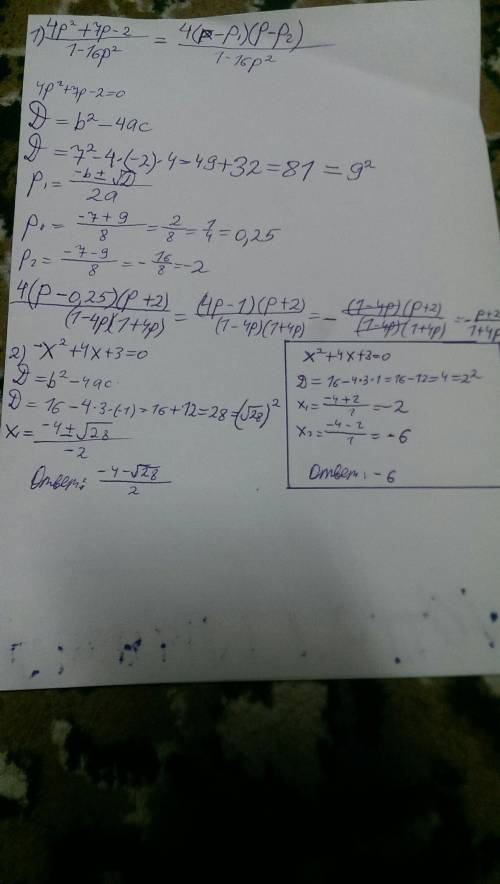 1) (4p² + 7p - 2)/(1 - 16p²) = 4(p - p₁)(p - p₂)/(1 - 16p²)
4p² + 7p - 2 = 0
D = b² - 4ac
D = 7² - 4·(-2)·4 = 49 + 32 = 81 = 9²
p₁ = (-b ± √D)/2a
p₁ = (-7 + 9)/8 = 2/8 = 1/4 = 0,25
p₂ = (-7 - 9)/8 = -16/8 = -2
4(p - 0,25)(p + 2)/((1 - 4p)(1 + 4p)) = (4p - 1)(p + 2)/((1 - 4p)(1 + 4p)) = -(1 - 4p)(p + 2)/((1 - 4p)(1 + 4p)) = -(p + 2)/(1 + 4p)
2) -x² + 4x + 3 = 0
D = b² - 4ac
D = 16 - 4·3·(-1) = 16 + 12 = 28 = (√28)²
x₁ = (-4 ± √28)/-2
Ответ: (-4 - √28)/2
x² + 4x + 3 = 0
D = 16 - 4·3·1 = 16 - 12 = 4 = 2²
x₁ = (-4 + 2)/1 = -2
x₂ = (-4 - 2)/1 = -6
Ответ: -6